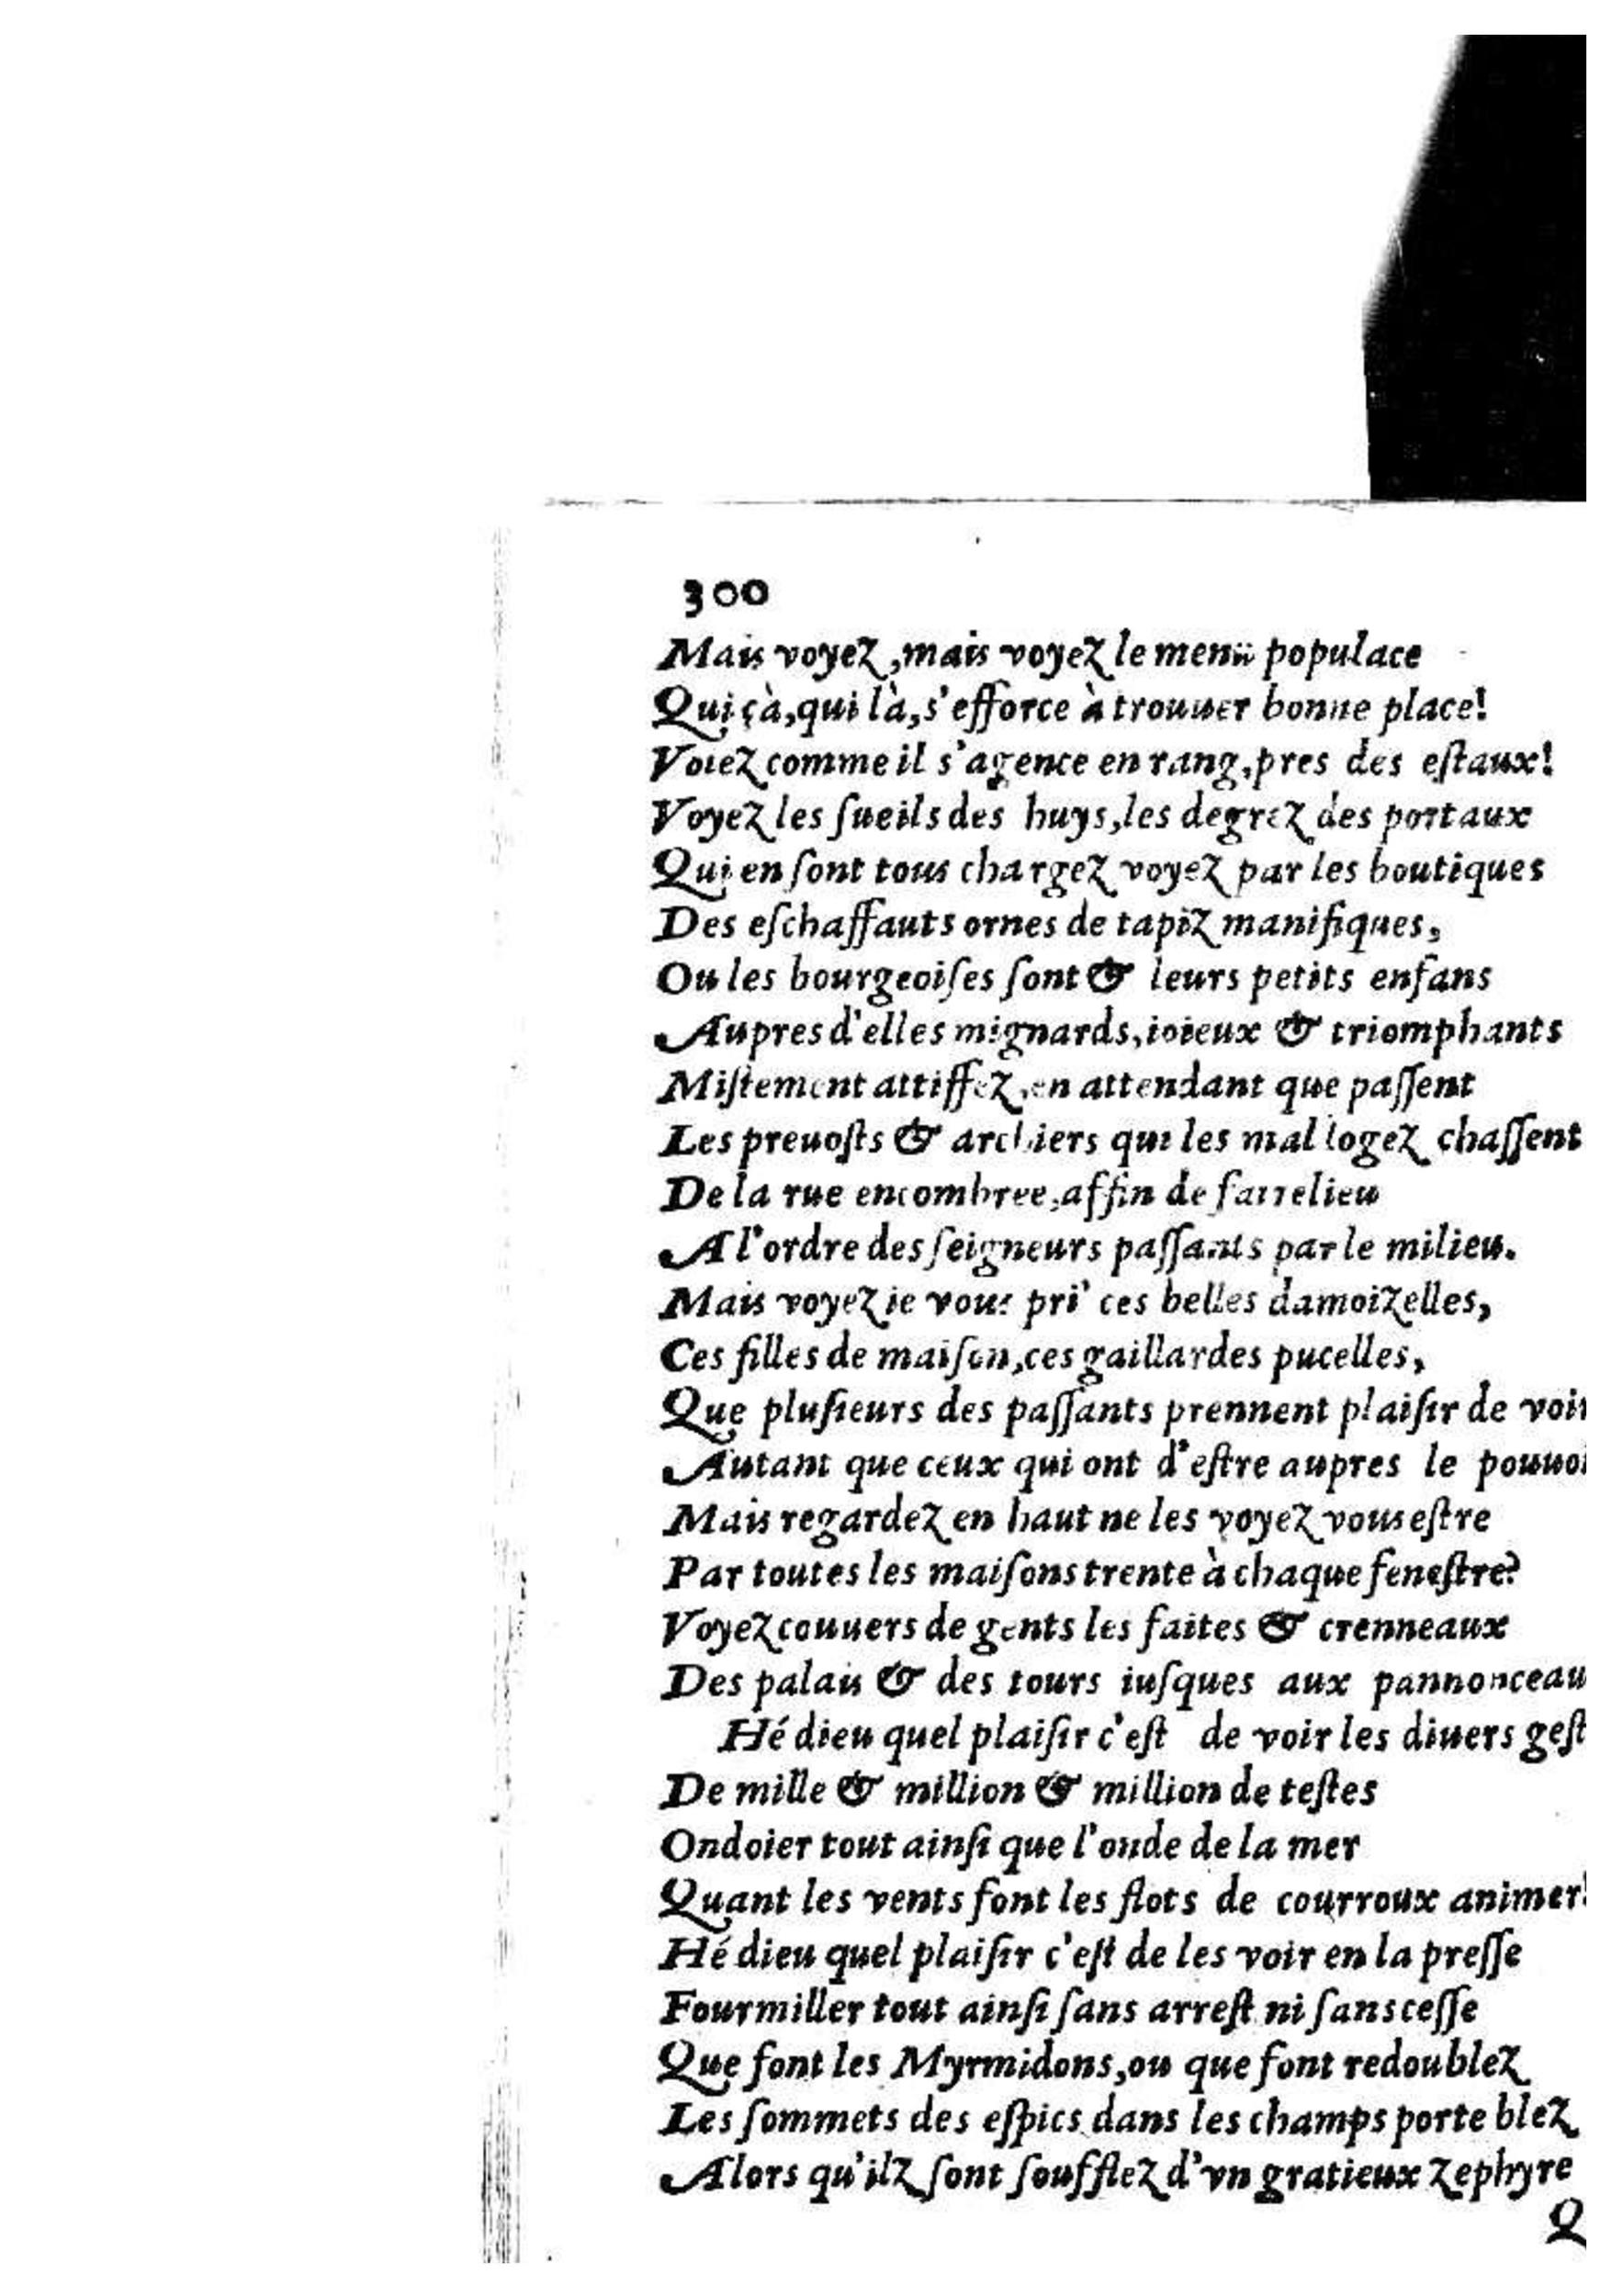 300
Mais voyez, mais voyez le menu populace
Qui çà, qui là, s'efforce à trouuer bonne place!
Voiez comme il s'agence en rang, pres des eſtaux!
Voyez les ſueils des huys, les degrez des portaux
Qui en ſont tous chargez voyez par les boutiques
Des eſchaffauts ornes de tapiz manifiques,
Ou les bourgeoiſes ſont & leurs petits enfans
Aupres d'elles mignards, ioieux & triomphants
Miſtement attiffez, en attendant que paſſent
Les preuoſts & archiers qui les mal logez chaſſent
De la rue encombree, affin de faire lieu
A l'ordre des ſeigneurs paſſants par le milieu.
Mais voyez ie vous pri' ces belles damoizelles,
Ces filles de maiſon, ces gaillardes pucelles,
Que pluſieurs des paſſants prennent plaiſir de voir
Autant que ceux qui ont d'eſtre aupres le pouuoi
Mais regardez en haut ne les voyez vous eſtre
Par toutes les maiſons trente à chaque feneſtre?
Voyez couuers de gents les faites & crenneaux
Des palais & des tours iuſques aux pannonceau
Hé dieu quel plaiſir c'eſt de voir les diuers geſt
De mille & million & million de teſtes
Ondoier tout ainſi que l'onde de la mer
Quant les vents font les flots de courroux animer!
Hé dieu quel plaiſir c'eſt de les voir en la preſſe
Fourmiller tout ainſi ſans arreſt ni ſans ceſſe
Que font les Myrmidons, ou que font redoublez
Les ſommets des eſpics dans les champs porte blez
Alors qu'ilz ſont ſoufflez d'vn gratieux zephyre
Q